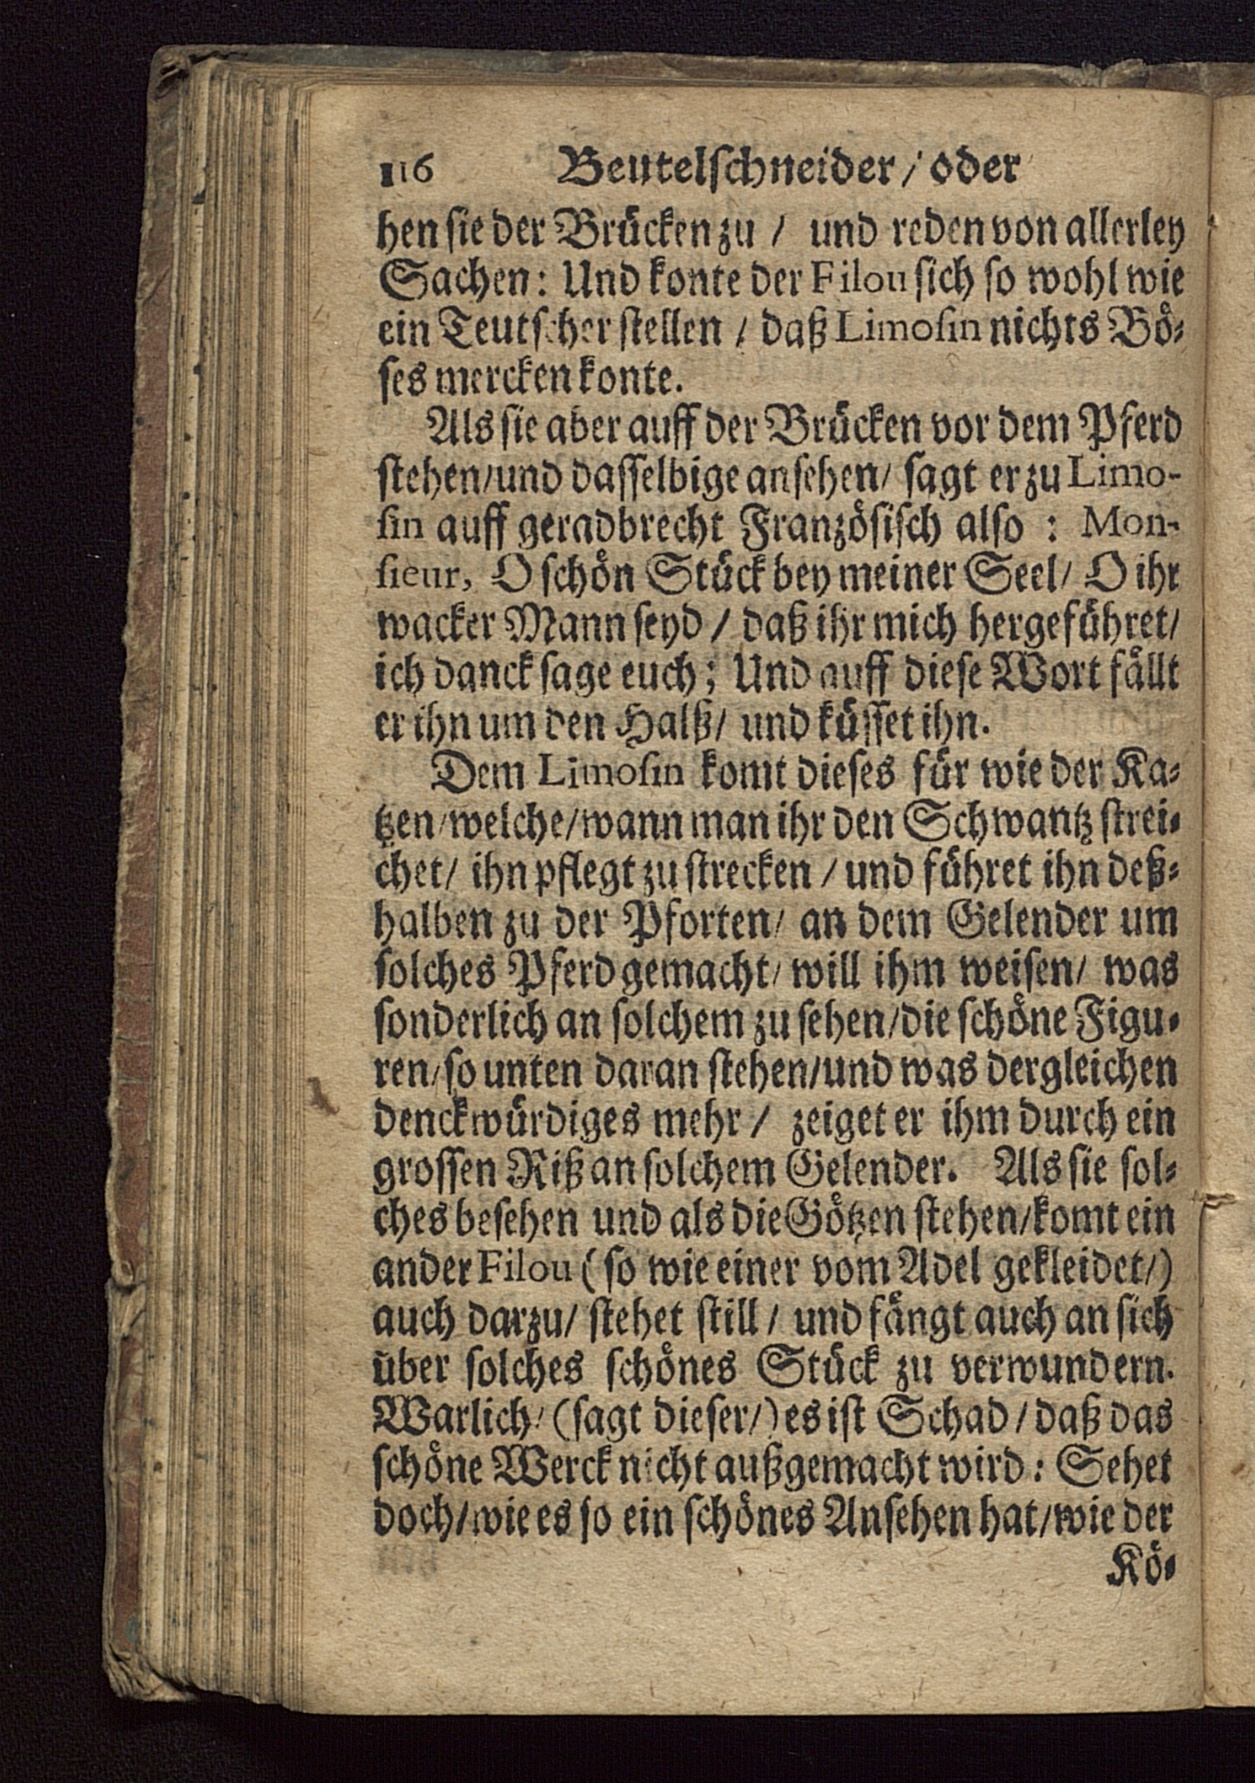 116 Beutelschneider / oder
hen sie der Brücken zu / und reden von allerley
Sachen: Und konte der Filou sich so wohl wie
ein Teutscher stellen / daß Limosin nichts Bö-
ses mercken konte.
Als sie aber auff der Brücken vor dem Pferd
stehen / und dasselbige ansehen / sagt er zu Limo-
sin auff geradbrecht Französisch also : Mon-
sieur, O schön Stück bey meiner Seel / O ihr
wacker Mann seyd / daß ihr mich hergeführet /
ich danck sage euch; Und auff diese Wort fällt
er ihn um den Halß / und küsset ihn.
Dem Limosin komt dieses für wie der Ka-
tzen / welche / wann man ihr den Schwantz strei-
chet / ihn pflegt zu strecken / und führet ihn deß-
halben zu der Pforten / an dem Gelender um
solches Pferd gemacht / will ihm weisen / was
sonderlich an solchem zu sehen / die schöne Figu-
ren / so unten daran stehen / und was dergleichen
denckwürdiges mehr / zeiget er ihm durch ein
grossen Riß an solchem Gelender. Als sie sol-
ches besehen und als die Götzen stehen / komt ein
ander Filou ( so wie einer vom Adel gekleidet / )
auch darzu / stehet still / und fängt auch an sich
über solches schönes Stück zu verwundern.
Warlich / (sagt dieser / ) es ist Schad / daß das
schöne Werck nicht außgemacht wird : Sehet
doch / wie es so ein schönes Ansehen hat / wie der
Kö-